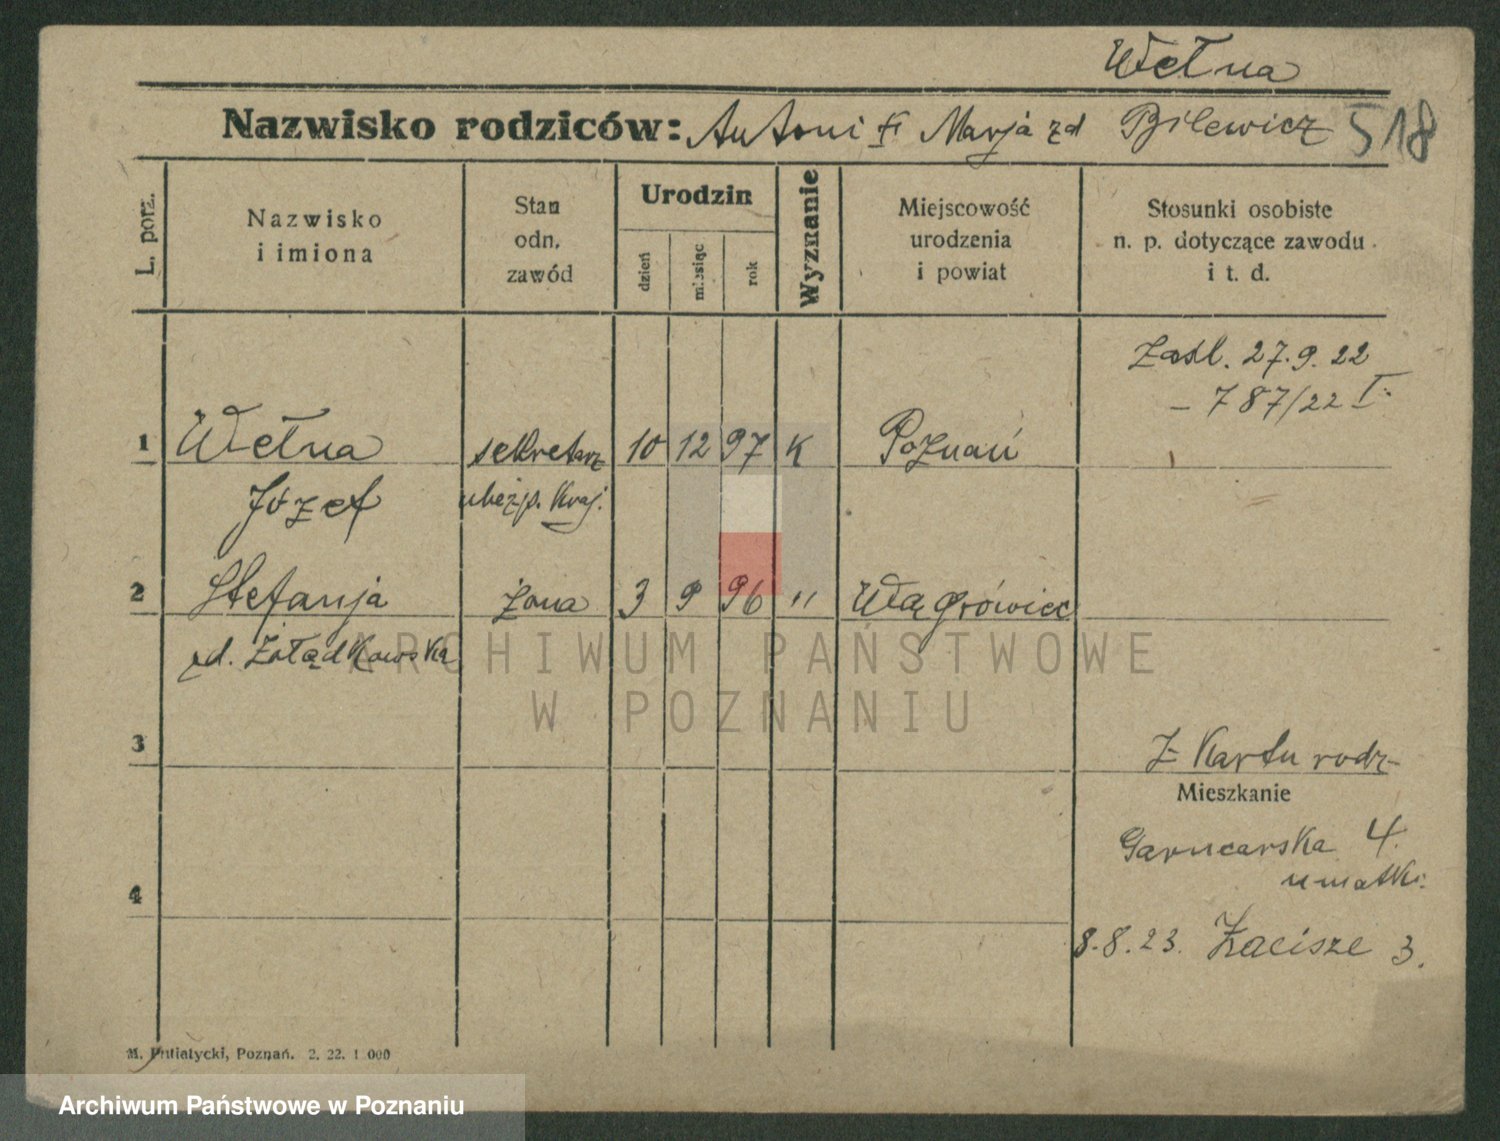 Wełna
Nazwisko rodziców: Antoni Marja zd Bilewicz 518
L. porz.
Nazwisko
i imiona
Stan
odn.
zawód
Urodzin
dzień
miesiąc
rok
Wyznanie
Miejscowość
urodzenia
i powiat
Stosunki osobiste
n. p. dotyczące zawodu
i t. d.
Zaśl. 27.9.22
– 787/22 I.
1 Wełna sekretarz 10 12 97 K Poznań
Józef ubezp. Kraj.
2 Stefanja żona 3 9 96 " Wągrówiec
zd. Żołądkowska
ARCHIWUM PAŃSTWOWE
W POZNANIU
3
Z Kartu rodz-
Mieszkanie
Garncarska 4.
u matki.
4
8.8.23. Zacisze 3.
M. Putiatycki, Poznań. 2. 22. 1 000
Archiwum Państwowe w Poznaniu